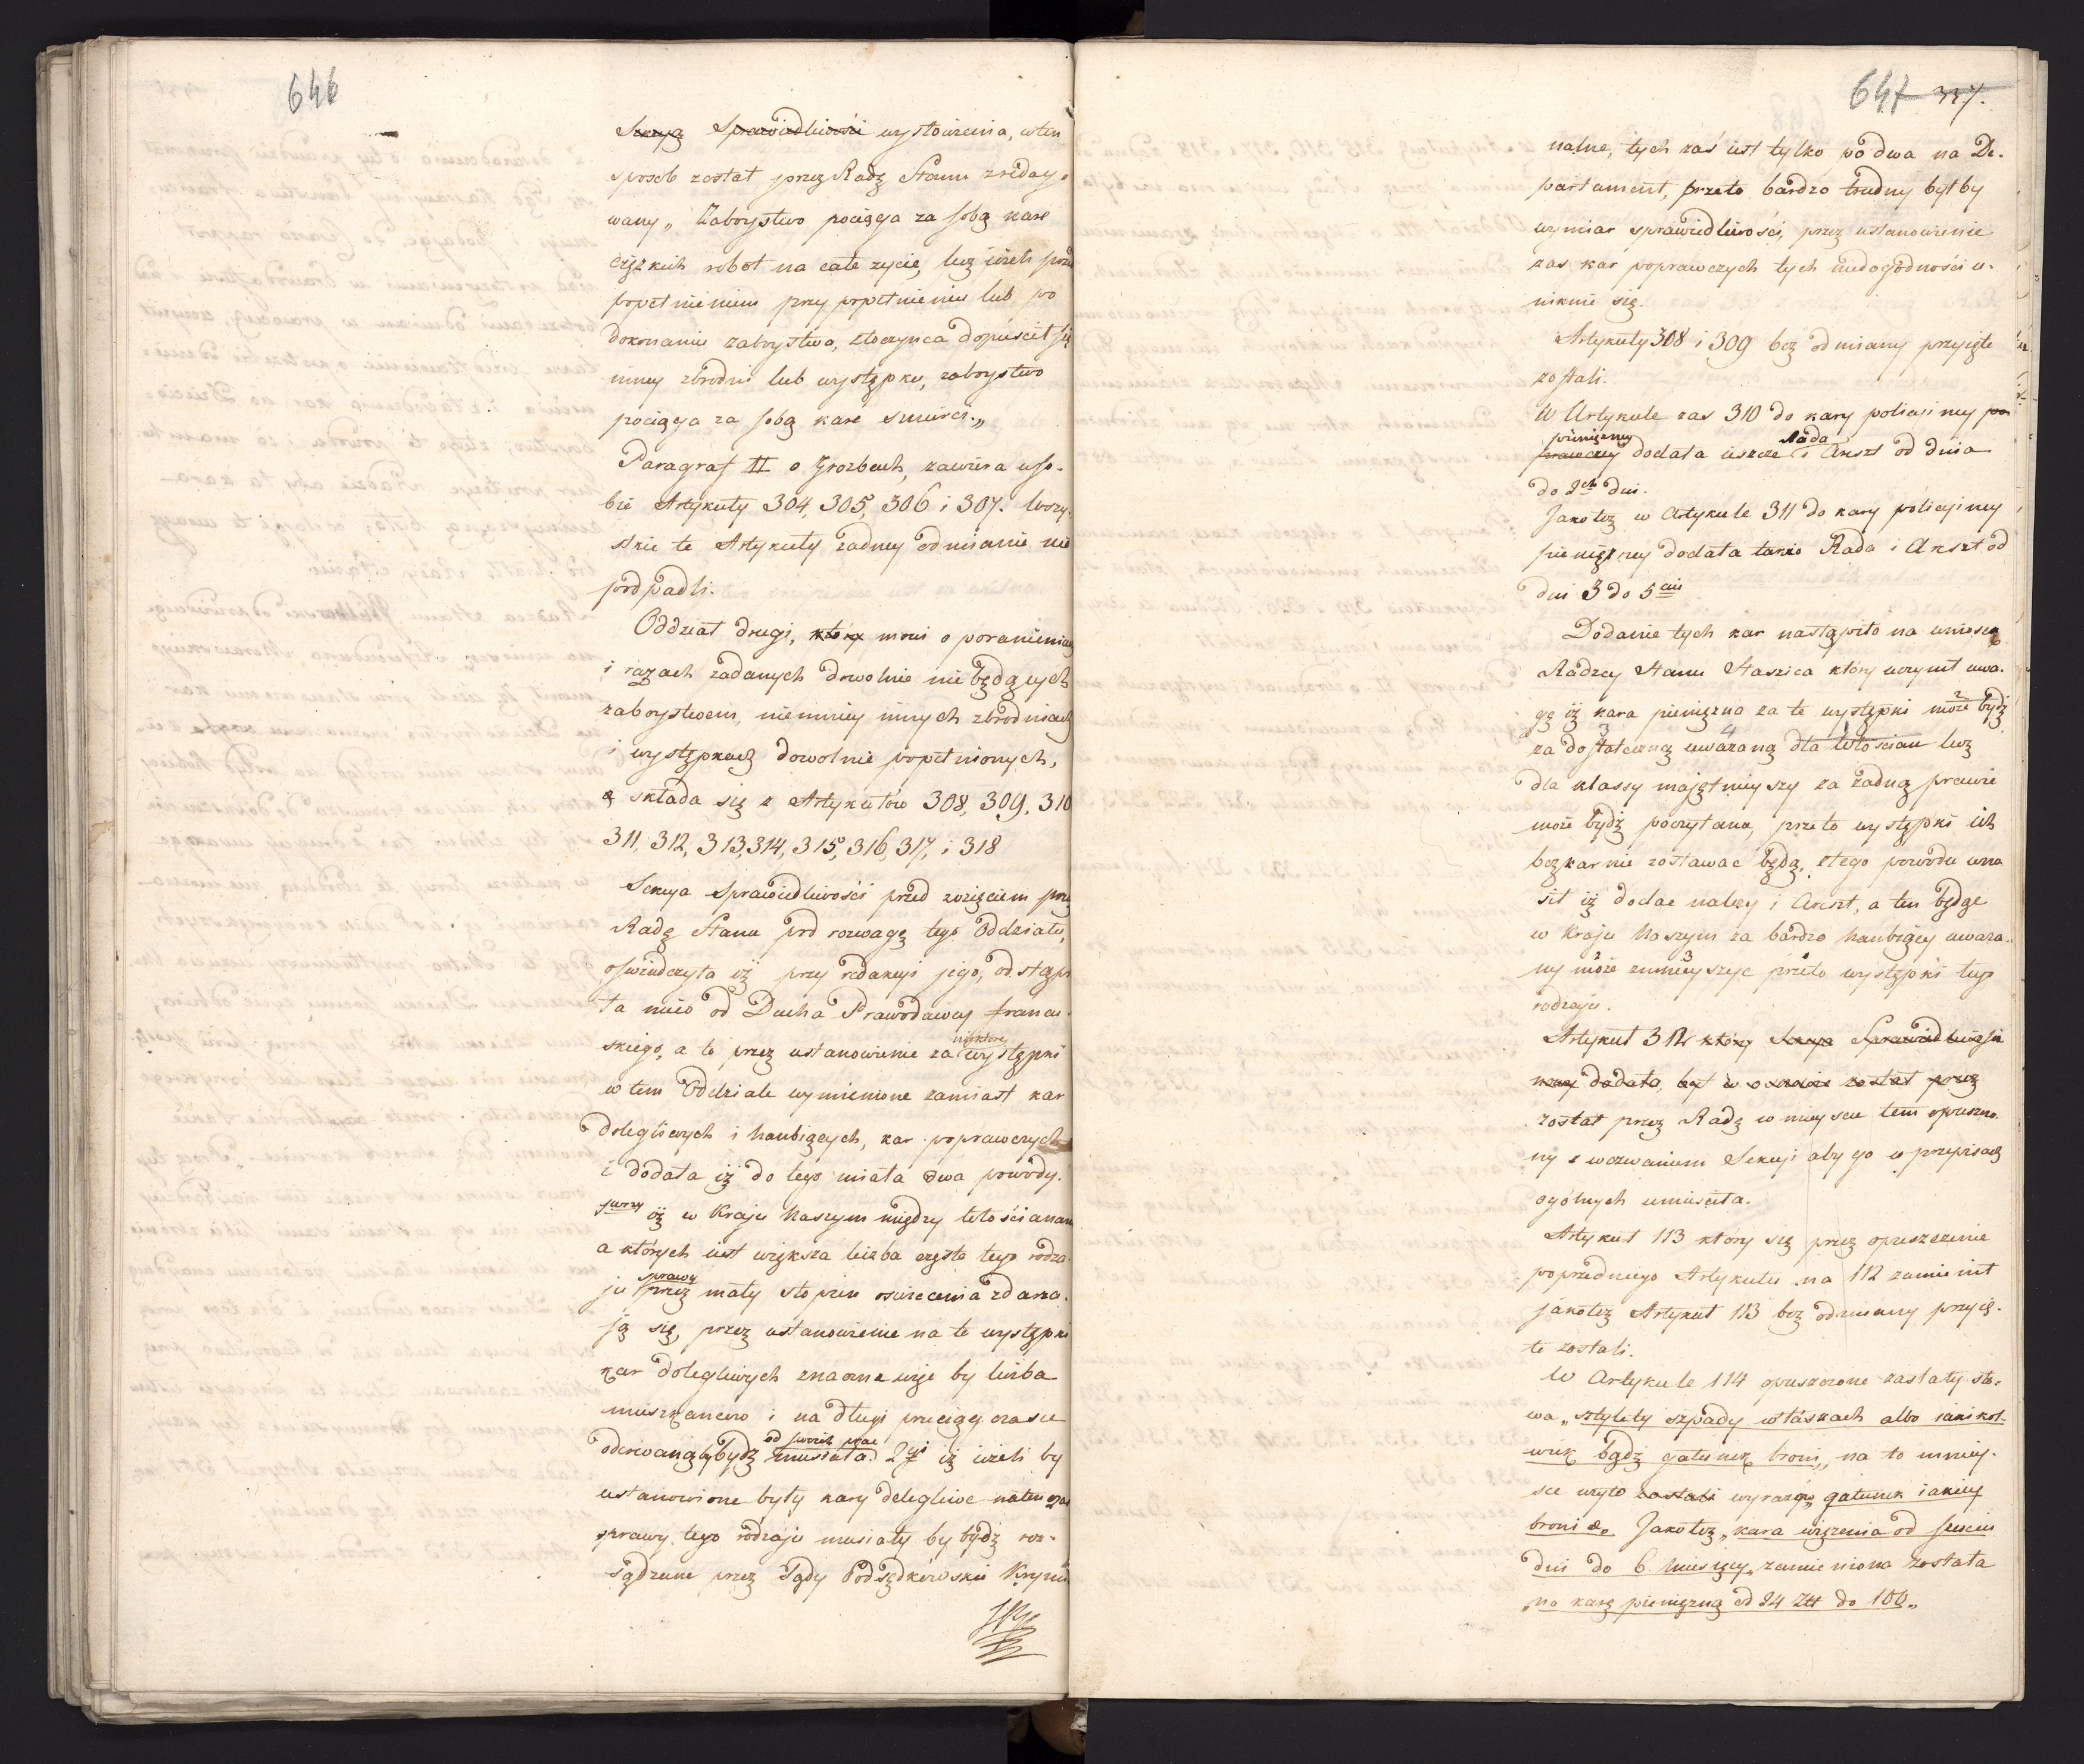 646
Sekcyą Sprawiedliwości wystowienia, w ten
sposob został przez Radę Stanu zredago-
wany „ Zaboystwo pociąga za sobą karę
ciężkich robot na całe zycie, lecz ieżeli przed
popełnieniem przy popełnieniu lub po
dokonaniu zaboystwa, złoczynca dopuścił się
inney zbrodni lub występku, zaboystwo
pociąga za sobą karę śmierci.„
Paragraf II o Groźbach, zawiera w so-
bie Artykuły 304, 305, 306 i 307. Wszy-
stkie te Artykuły żadney odmianie nie
podpadli.
Oddział drugi, który mowi o poranieniach
i razach zadanych dowolnie nie będących
zaboystwem, niemniey innych zbrodniach
i występkach dowolnie popełnionych,
składa się z Artykułów 308, 309, 310
311, 312, 313, 314, 315, 316, 317, i 318
Sekcya Sprawiedliwości przed wzięciem przez
Radę Stanu pod rozwagę tego Oddziału,
oświadczyła iż przy redakcyi jego, odstąpi-
ła nieco od Ducha Prawodawcy francu-
skiego, a to przez ustanowienie za niektóre występki
w tem Oddziale wymienione zamiast kar
dolegliwych i hanbiących, kar poprawczych
i dodała iż do tego miała dwa powody.
pierwszy iż w Kraju Naszym między włościanami
a których iest większa liczba częste tego rodza-
ju sprawy przez mały stopien oświecenia zdarza-
ją się, przez ustanowienie na te występki
kar dolegliwych znaczna więc by liczba
mieszkancow i na długi przeciąg czasu
oderwaną by bydź od swoich prac musiała. 2gi iż ieżeli by
ustanowione były kary dolegliwe naten czas
sprawy tego rodzaju musiały by bydź roz-
sądzane przez Sądy Podsędkowskie Krymi-
647 337.
nalne, tych zaś iest tylko po dwa na De-
partament, przeto bardzo trudny byłby
wymiar sprawiedliwości, przez ustanowienie
zas kar poprawczych tych niedogodności u-
niknie się.
Artykuły 308 i 309 bez odmiany przyięte
zostali.
W Artykule zas 310 do kary policyiney po-
prawczey pienięzney dodała ieszcze Rada i Areszt od dnia
do 2ch dni.
Jako też w Artykule 311 do kary policyiney
pienięzney dodała także Rada i Areszt od
dni 3 do 5ciu
Dodanie tych kar nastąpiło na wniosek
Radzcy Stanu Staszica który uczynił uwa-
gę iż kara pieniężna za te występki może 2 bydź
za dostateczną 3 uważaną 4 dla Włościan lecz
dla klassy majętnieyszy za żadną prawie
może bydź poczytana, przeto występki ich
bezkarnie zostawac będą, z tego powodu wno-
sił iż dodac należy i Areszt, a ten będąc
w Kraju Naszym za bardzo hanbiący uwaza-
ny może 2 zmnieyszyc 3 przeto występki tego
rodzaju.
Artykuł 312 który Sekcya Sprawiedliwości
dodała, był został przez
został przez Radę w mieyscu tem opuszczo-
ny z wezwaniem Sekcyi aby go w przepisach
ogólnych umieściła.
Artykuł 113 który się przez opuszczenie
poprzedniego Artykułu na 112 zamienił
jakoteż Artykuł 113 bez odmiany przyię-
te zostali.
W Artykule 114 opuszczone zastały sło-
wa „sztylety szpady w laskach albo iakikol-
wiek bądź gatunek broni„ na to miey-
sce użyto zostali wyrazow „gatunek iakiey
broni &. Jakoteż „kara więzienia od sześciu
dni do 6. Miesięcy„ zamieniona została
„na karę pieniężną od 24 Złł do 100„